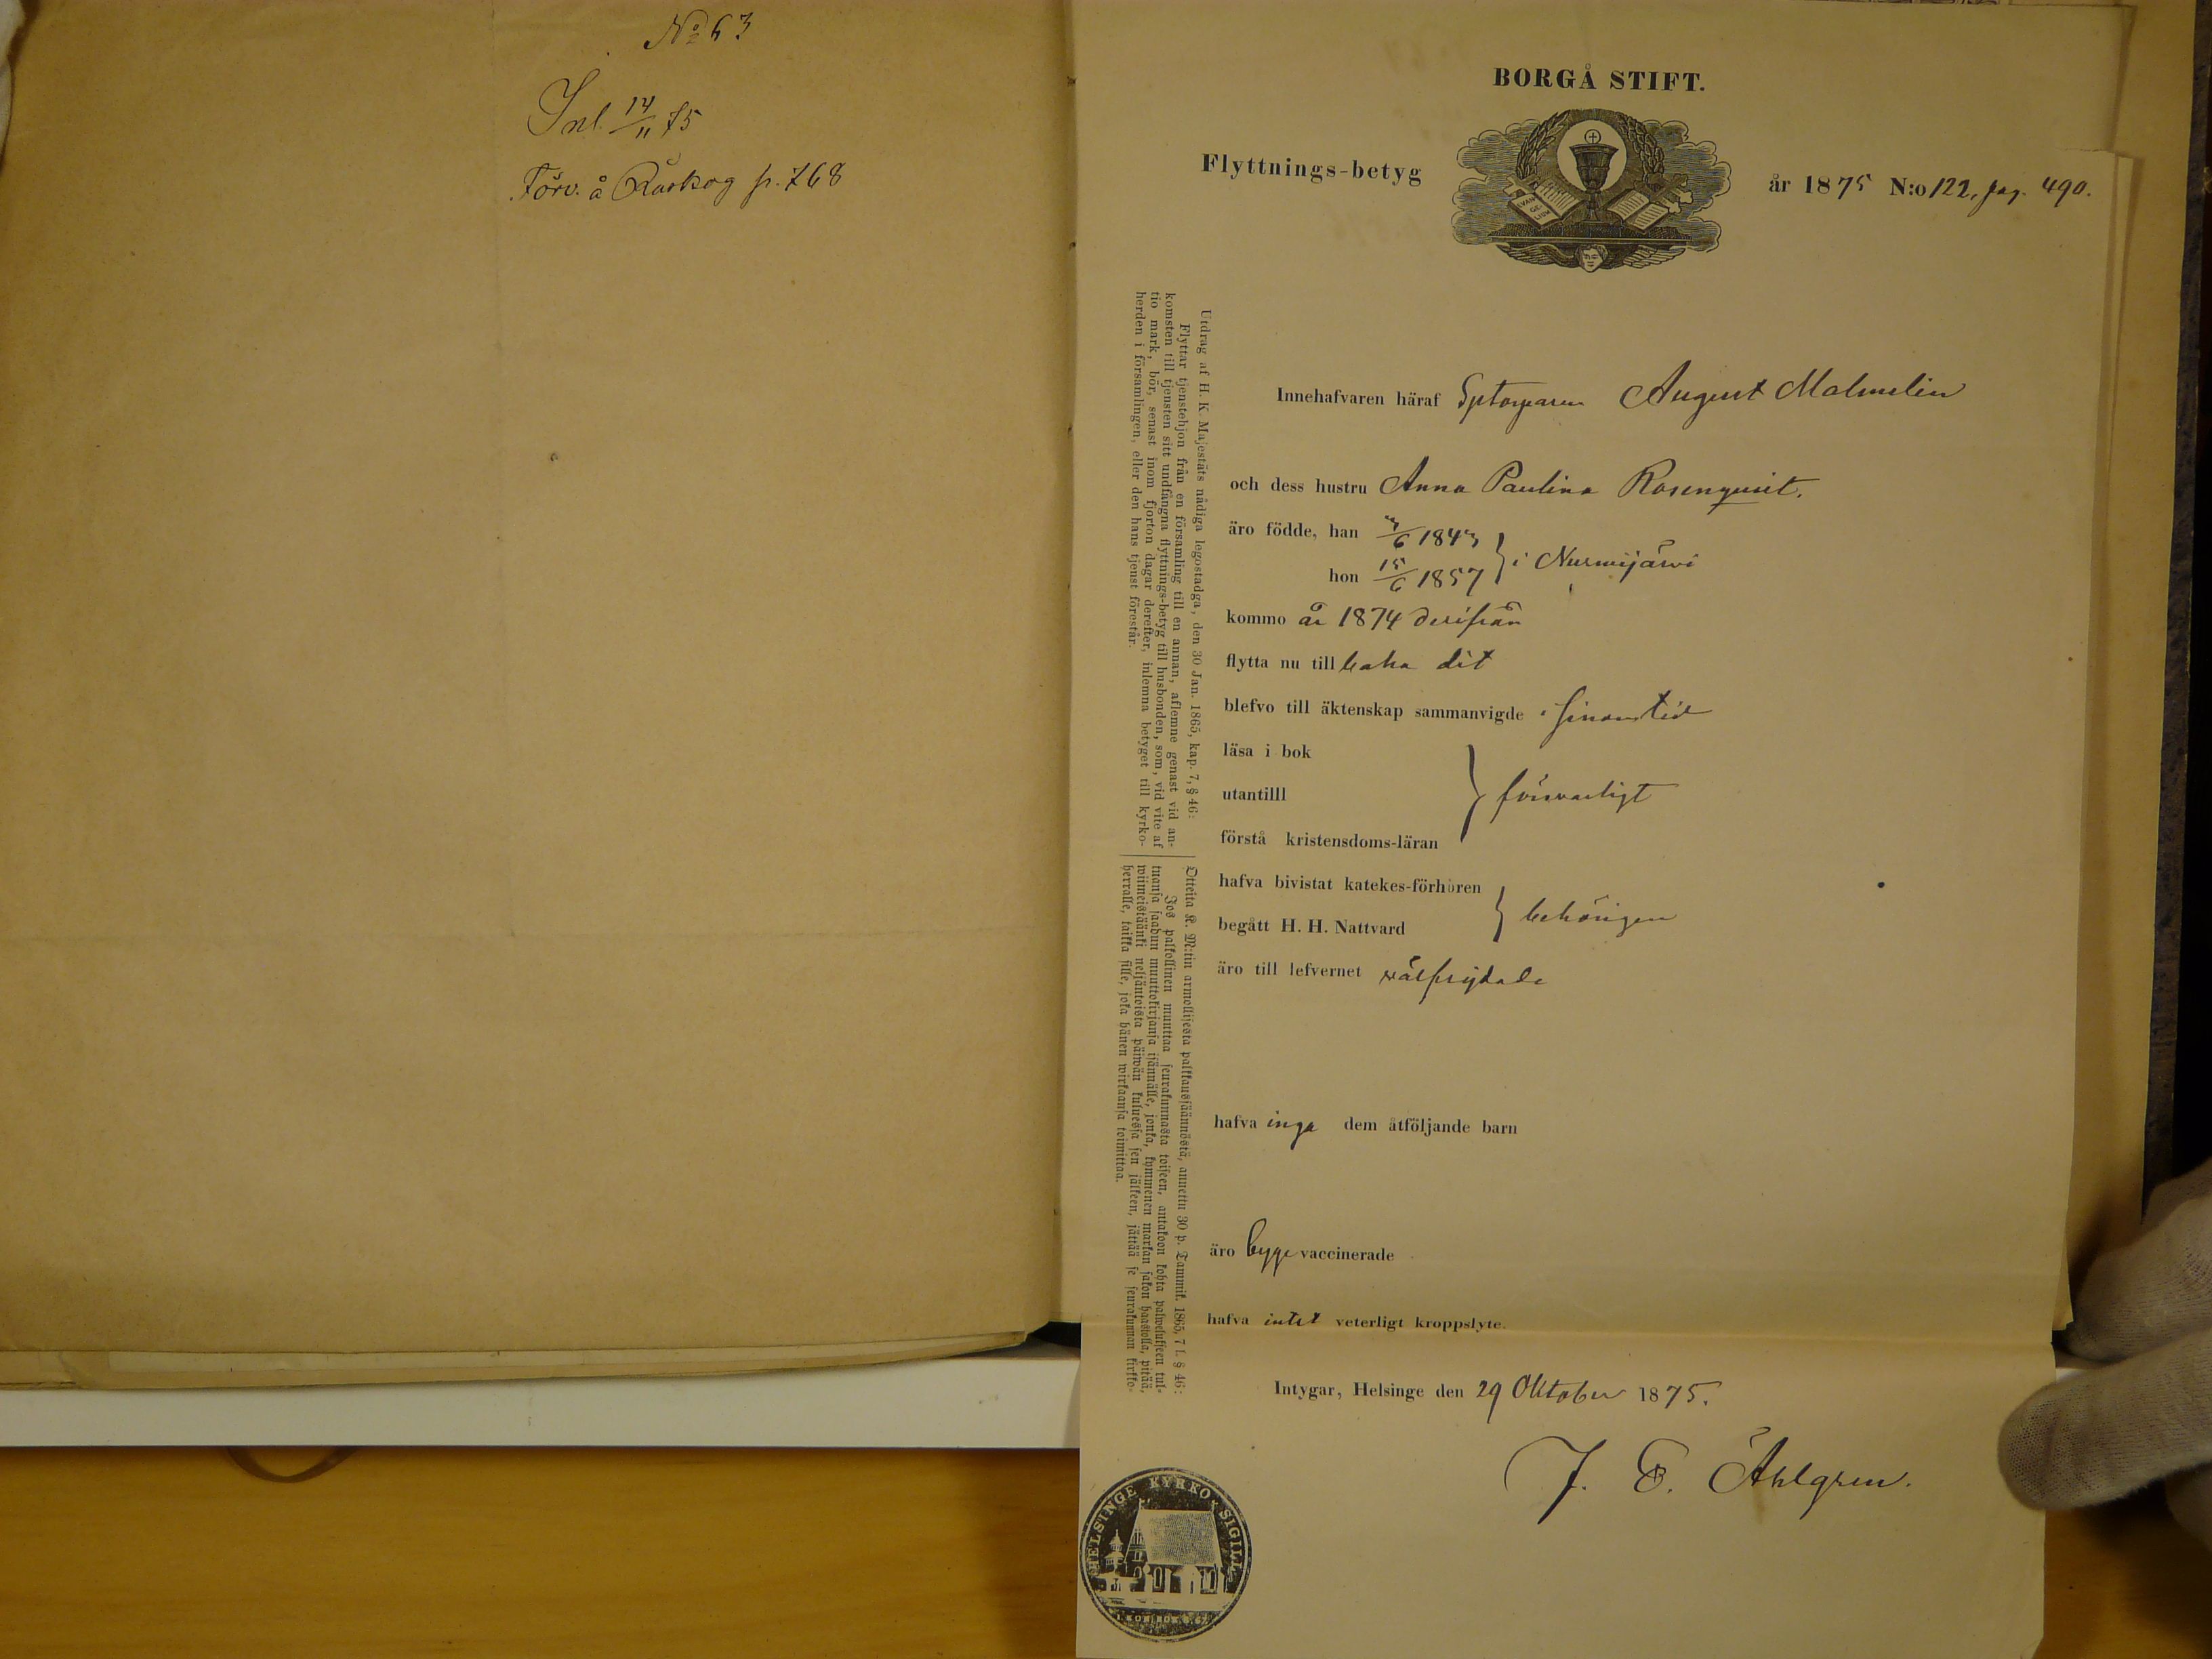 No 63
Inl. 14/11 75
Förv. å Råskog p. 768
BORGÅ STIFT.
Flyttnings-betyg
EVAN
GE-
LIUM
år 1875 N:o 122, pag. 490.
Innehafvaren häraf Sptorparen August Malmelin
och dess hustru Anna Paulina Rosenqvist.
äro födde, han /6 184
hon 15/6 1857 } i Nurmijärvi
kommo år 1874 derifrån
flytta nu till baka dit
blefvo till äktenskap sammanvigde i sinom tid
läsa i bok
utantilll } försvarligt
förstå kristensdoms-läran
hafva bivistat katekes-förhören
begått H. H. Nattvard } behörigen
äro till lefvernet välfrejdade
hafva inga dem åtföljande barn
äro begge vaccinerade
hafva intet veterligt kroppslyte.
Intygar, Helsinge den 29 Oktober 1875.
J. E. Åhlgren.
Utdrag af H. K. Majestäts nådiga legostadga, den 30 Jan. 1865, kap. 7, § 46:
Flyttar tjenstehjon från en församling till en annan, aflemne genast vid an-
komsten till tjensten sitt undfångna flyttnings-betyg till husbonden, som, vid vite af
tio mark, bör, senast inom fjorton dagar derefter, inlemna betyget till kyrko-
herden i församlingen, eller den hans tjenst förestår.
Otteita K. M:tin armollisesta palkkaussäännöstä, annettu 30 p. Tammik. 1865, 7 l. § 46:
Jos palkollinen muuttaa seurakunnasta toiseen, antakoon kohta palwelukseen tul-
tuansa saadun muuttokirjansa isännälle, jonka, kymmenen markan sakon haastolla, pitää,
wiimeistäänki neljäntoista päiwän kuluessa sen jälkeen, jättää se seurakunnan kirkko-
herralle, taikka sille, joka hänen wirkaansa toimittaa.
HELSINGE KYRKO SIGILL